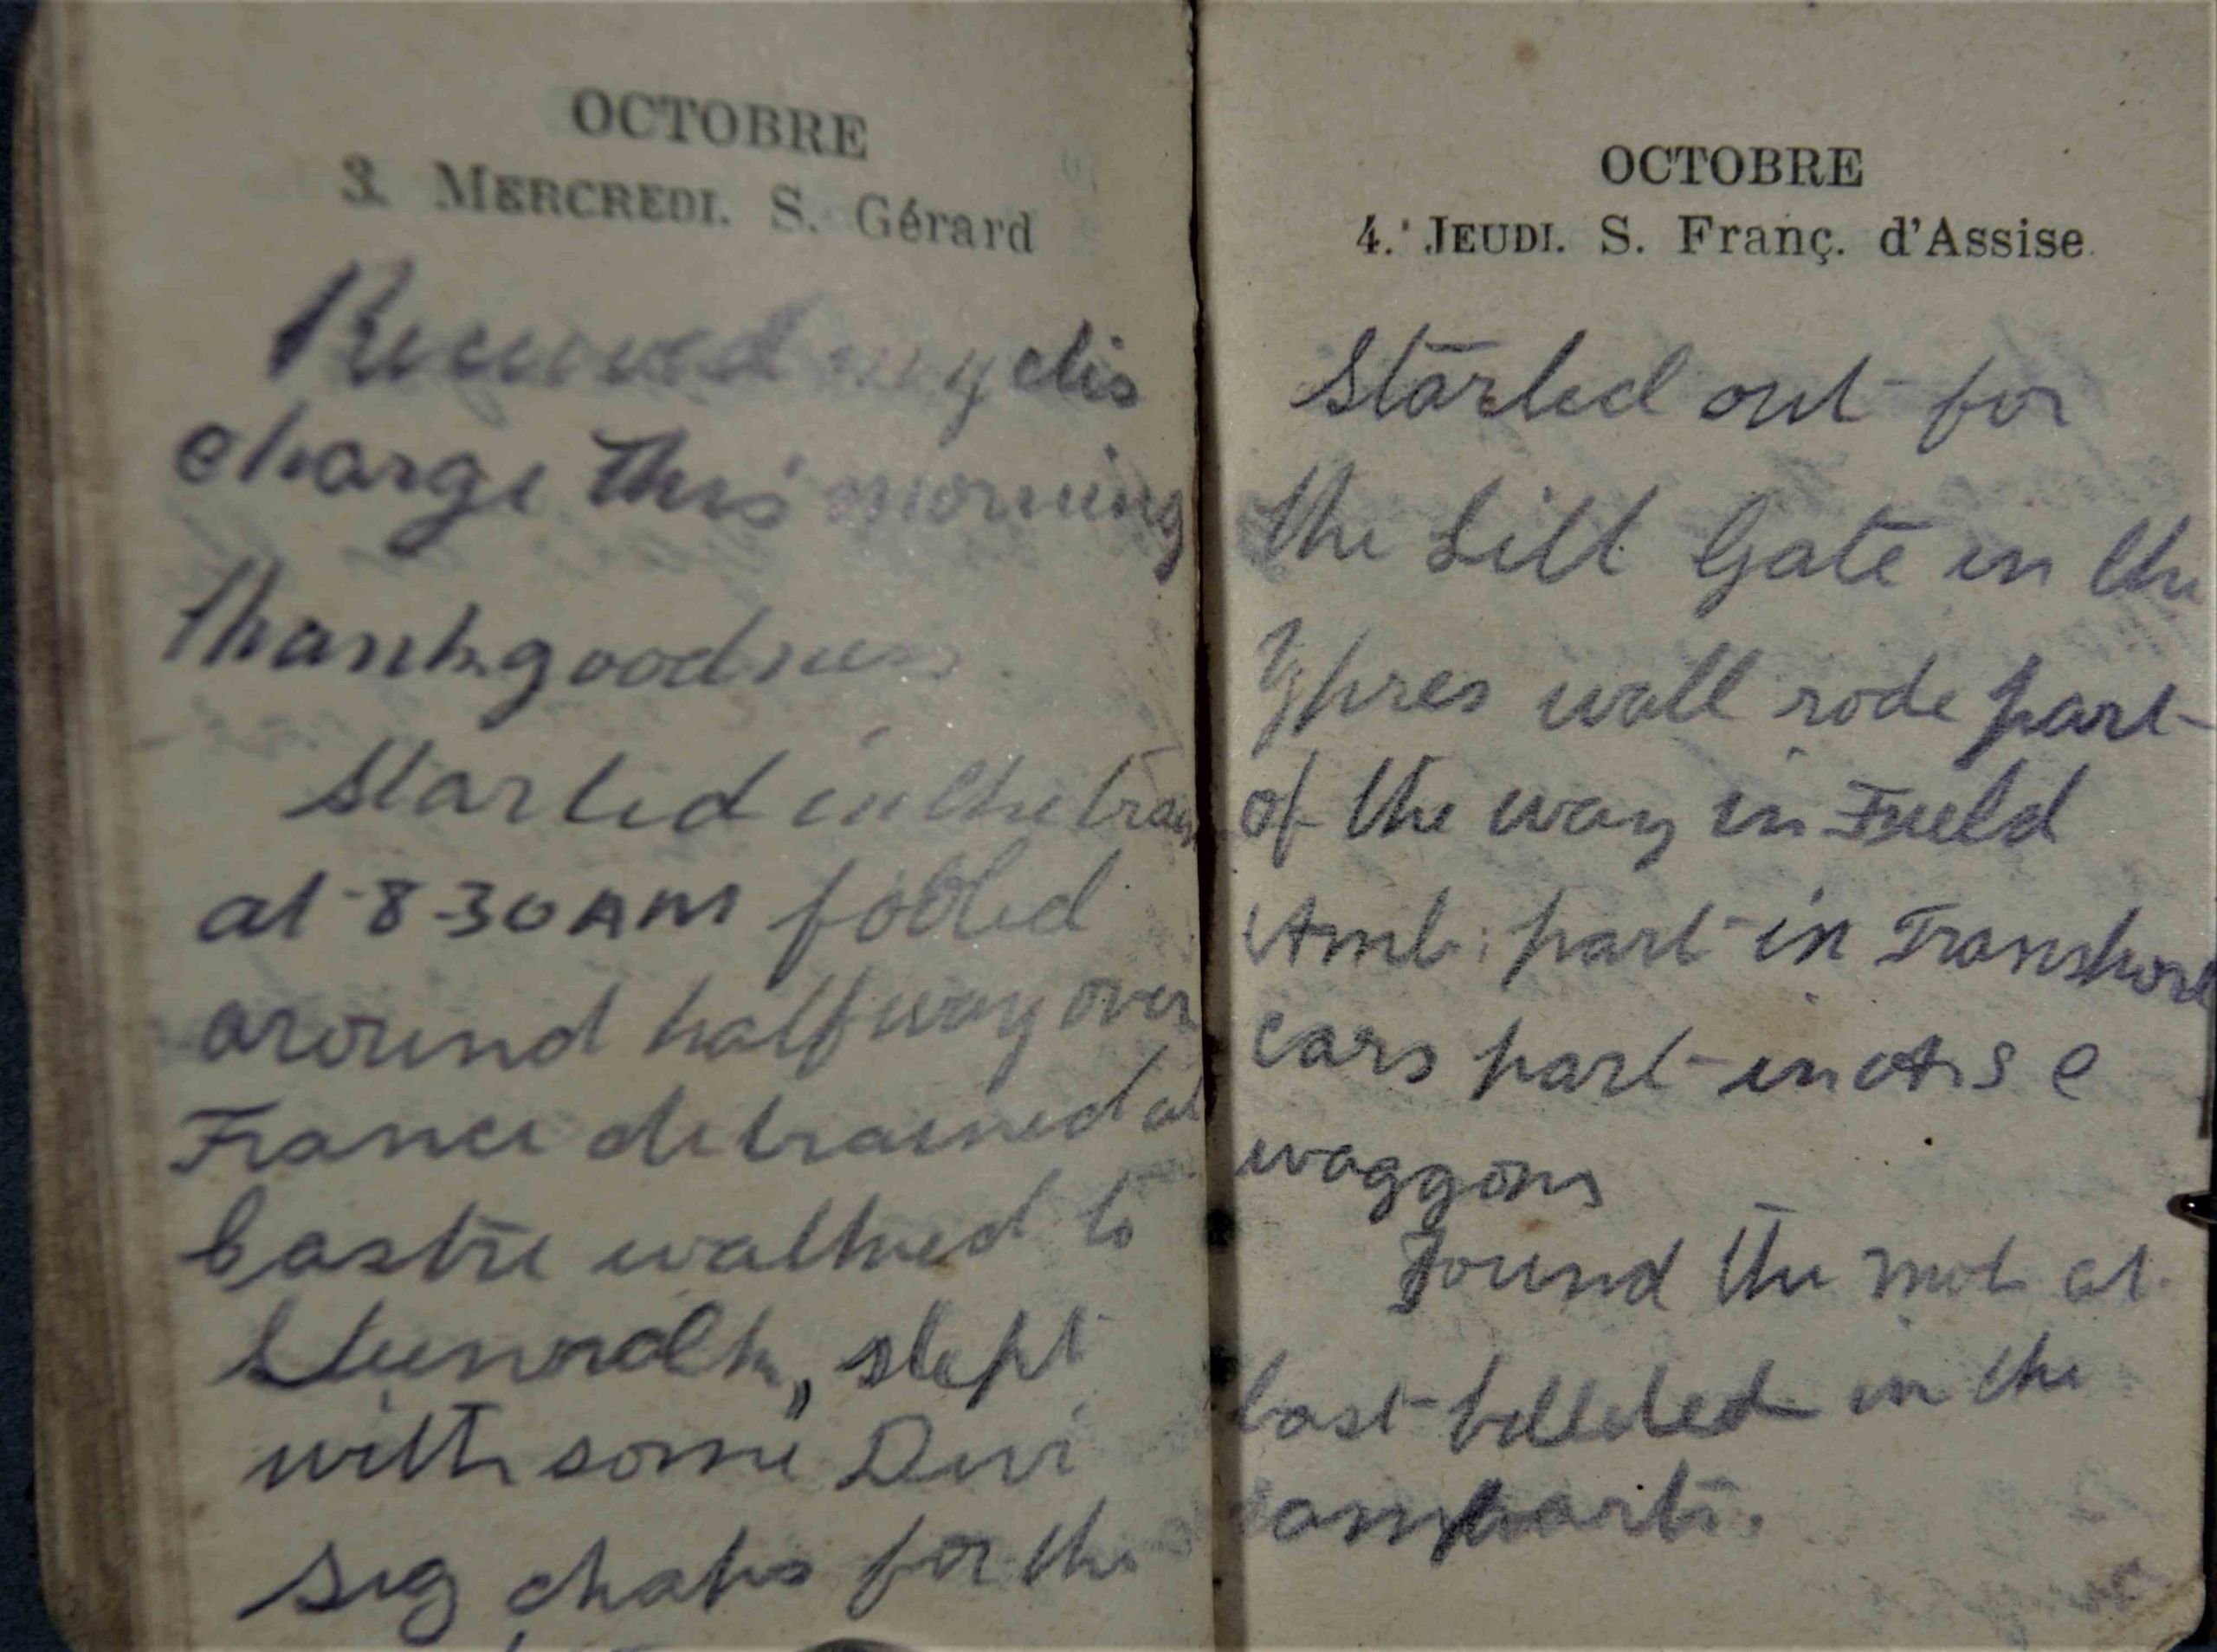 OCTOBRE
3. MERCREDI. S. Gérard
Received my dis
charge this morning
thankgoodness
Started in the train
at 8-30 AM fooled
around half way over
France detrained at
Castre walked to
slept
with some Divi
sig chaps for the
OCTOBRE
4. JEUDI. S. Franç. d'Assise
Started out for
the Lill Gate in the
Ypres wall rode part
of the way in Field
Amb: part in Transport
cars part in A S C
waggons
Found the mob at
last billeted in the
ramparts.